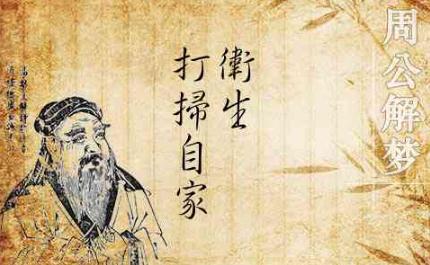 周公解梦
衛生
打掃自家